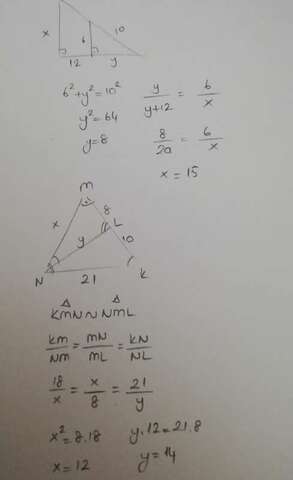 x 6 10
12 y
6²+y²=10² y/y+12 = 6/x
y²=64 8/20 = 6/x
y=8
x=15
M
x 8
L
y 10
N 21 K
KMN ~ NML
KM/NM = MN/ML = KN/NL
18/x = x/8 = 21/y
x²=8.18 y.12=21.8
x=12 y=14